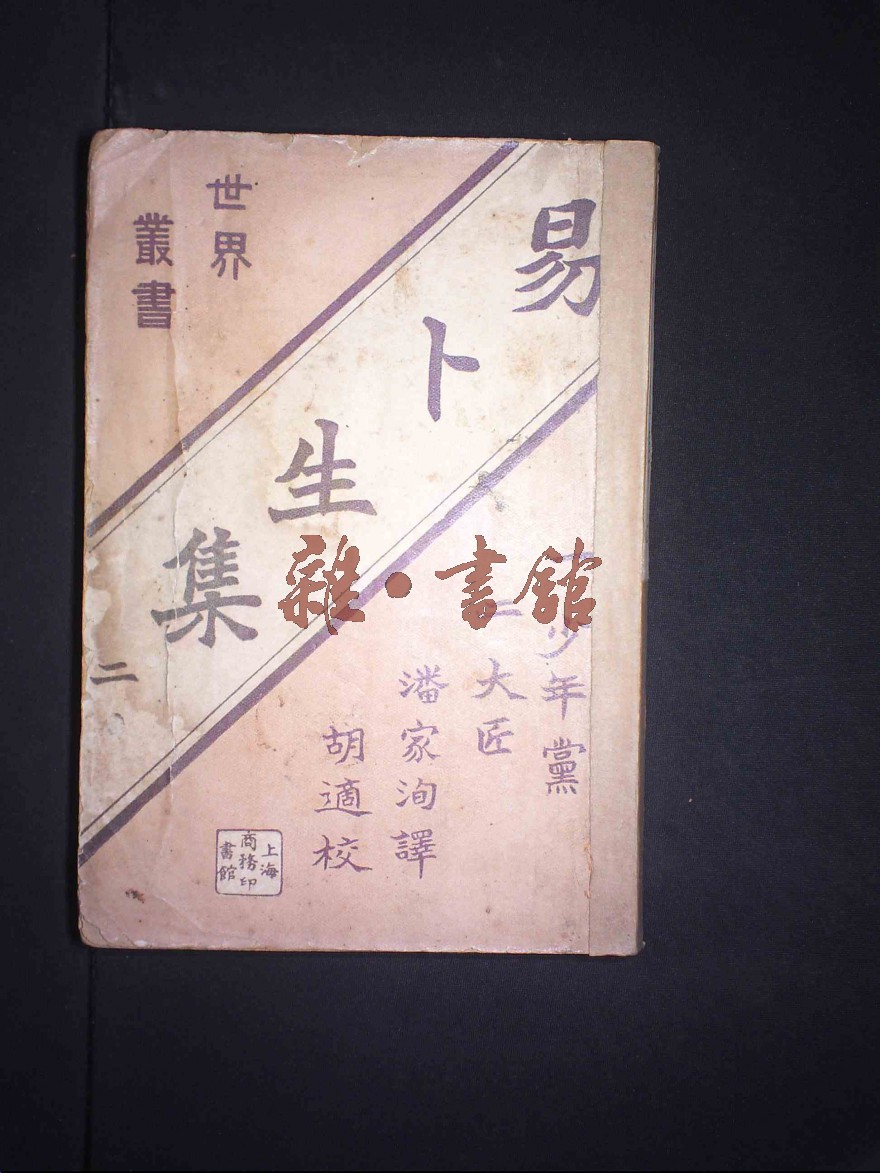 世界
叢書
易卜生集
二
一 少年黨
二 大匠
潘家洵譯
胡適校
上海
商務印
書館
雜·書館